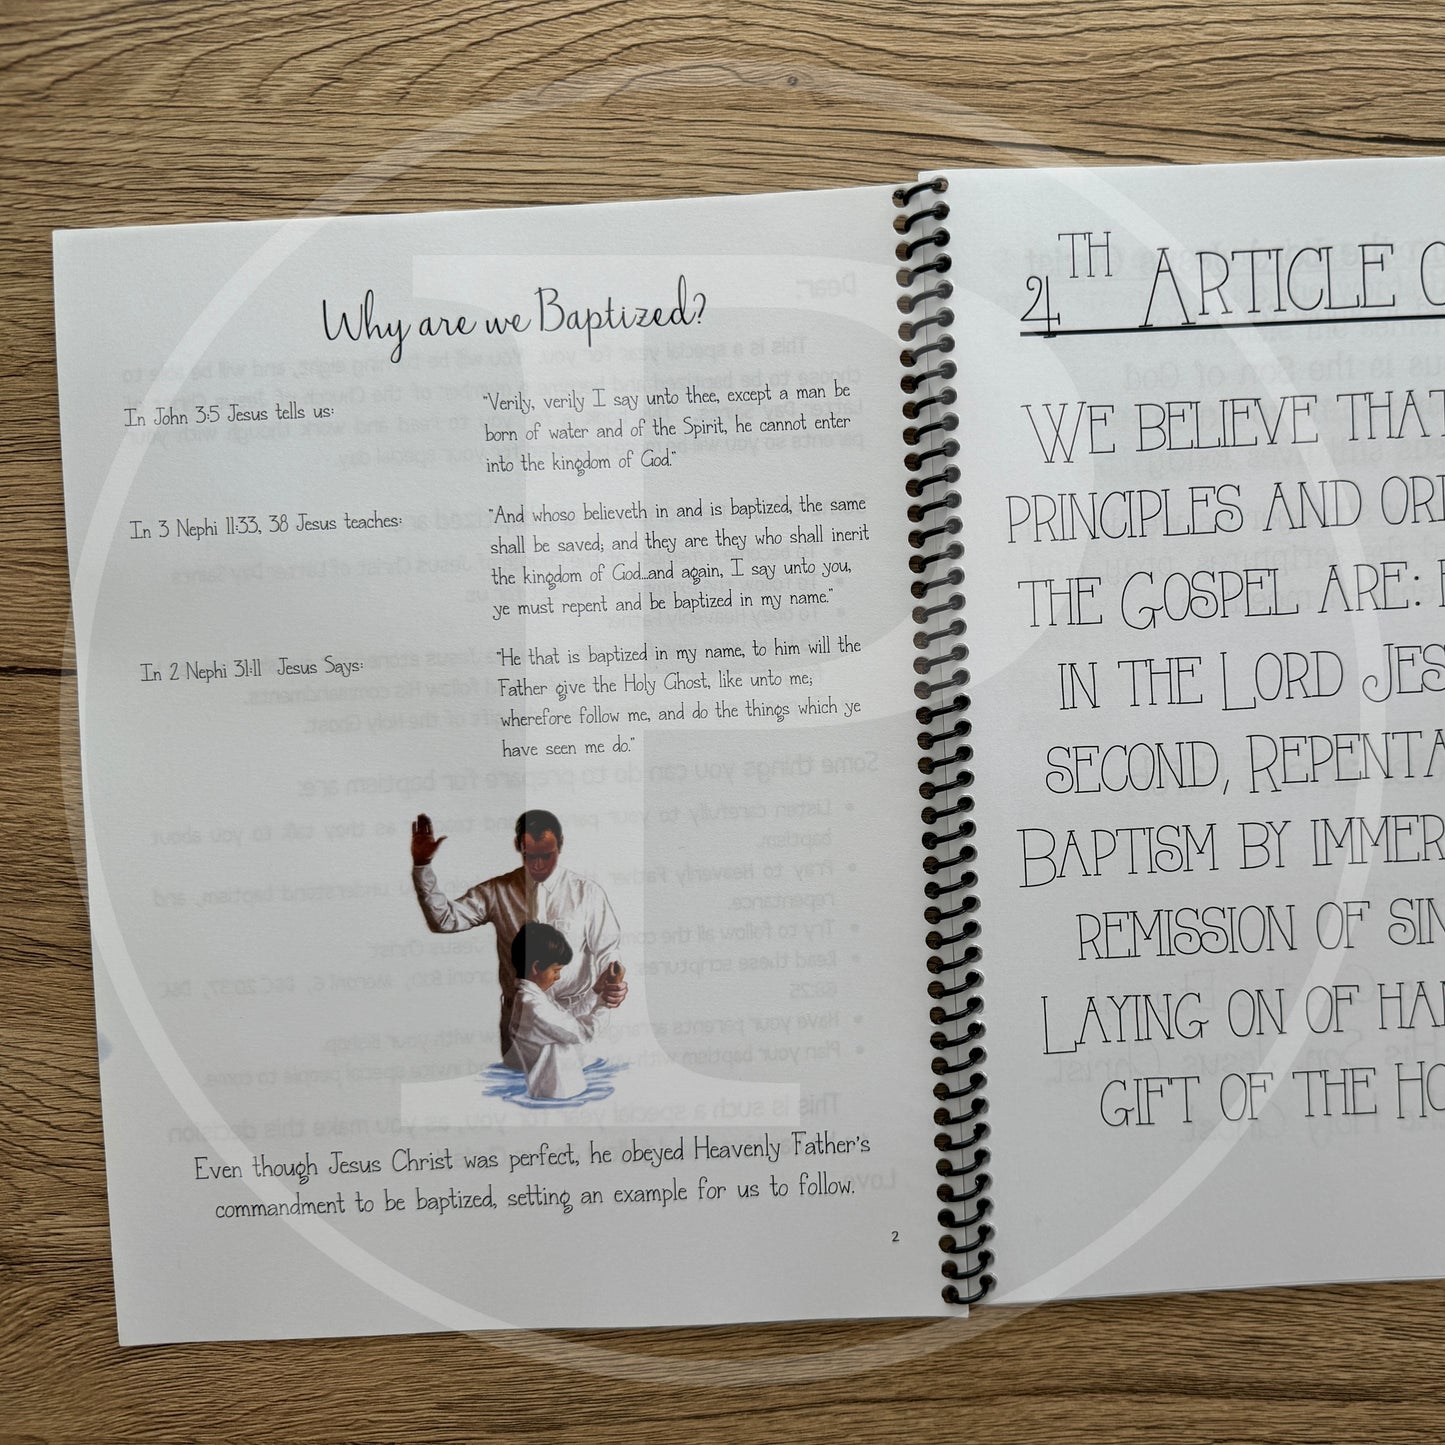 Why are we Baptized?
In John 3:5 Jesus tells us:
"Verily, verily I say unto thee, except a man be
born of water and of the Spirit, he cannot enter
into the kingdom of God."
In 3 Nephi 11:33, 38 Jesus teaches:
"And whoso believeth in and is baptized, the same
shall be saved; and they are they who shall inerit
the kingdom of God...and again, I say unto you,
ye must repent and be baptized in my name."
In 2 Nephi 31:11 Jesus Says:
"He that is baptized in my name, to him will the
Father give the Holy Ghost, like unto me;
wherefore follow me, and do the things which ye
have seen me do."
Even though Jesus Christ was perfect, he obeyed Heavenly Father's
commandment to be baptized, setting an example for us to follow.
2
4TH ARTICLE
WE BELIEVE THAT
PRINCIPLES AND
THE GOSPEL ARE:
IN THE LORD
SECOND,
BAPTISM BY
REMISSION OF
LAYING ON OF
GIFT OF THE
P